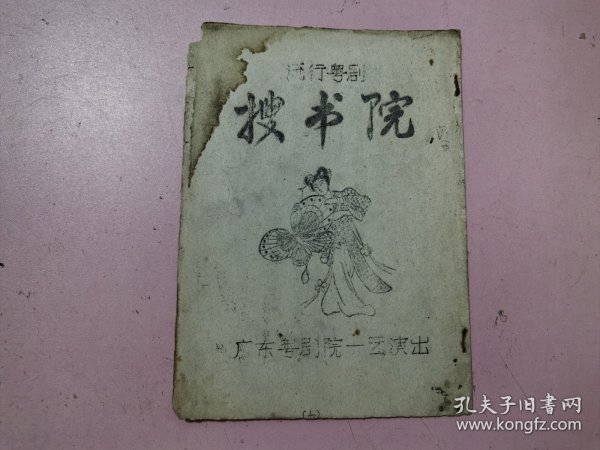 流行粤剧
搜书院
广东粤剧院一团演出
(七)
孔夫子旧书网
www.kongfz.com